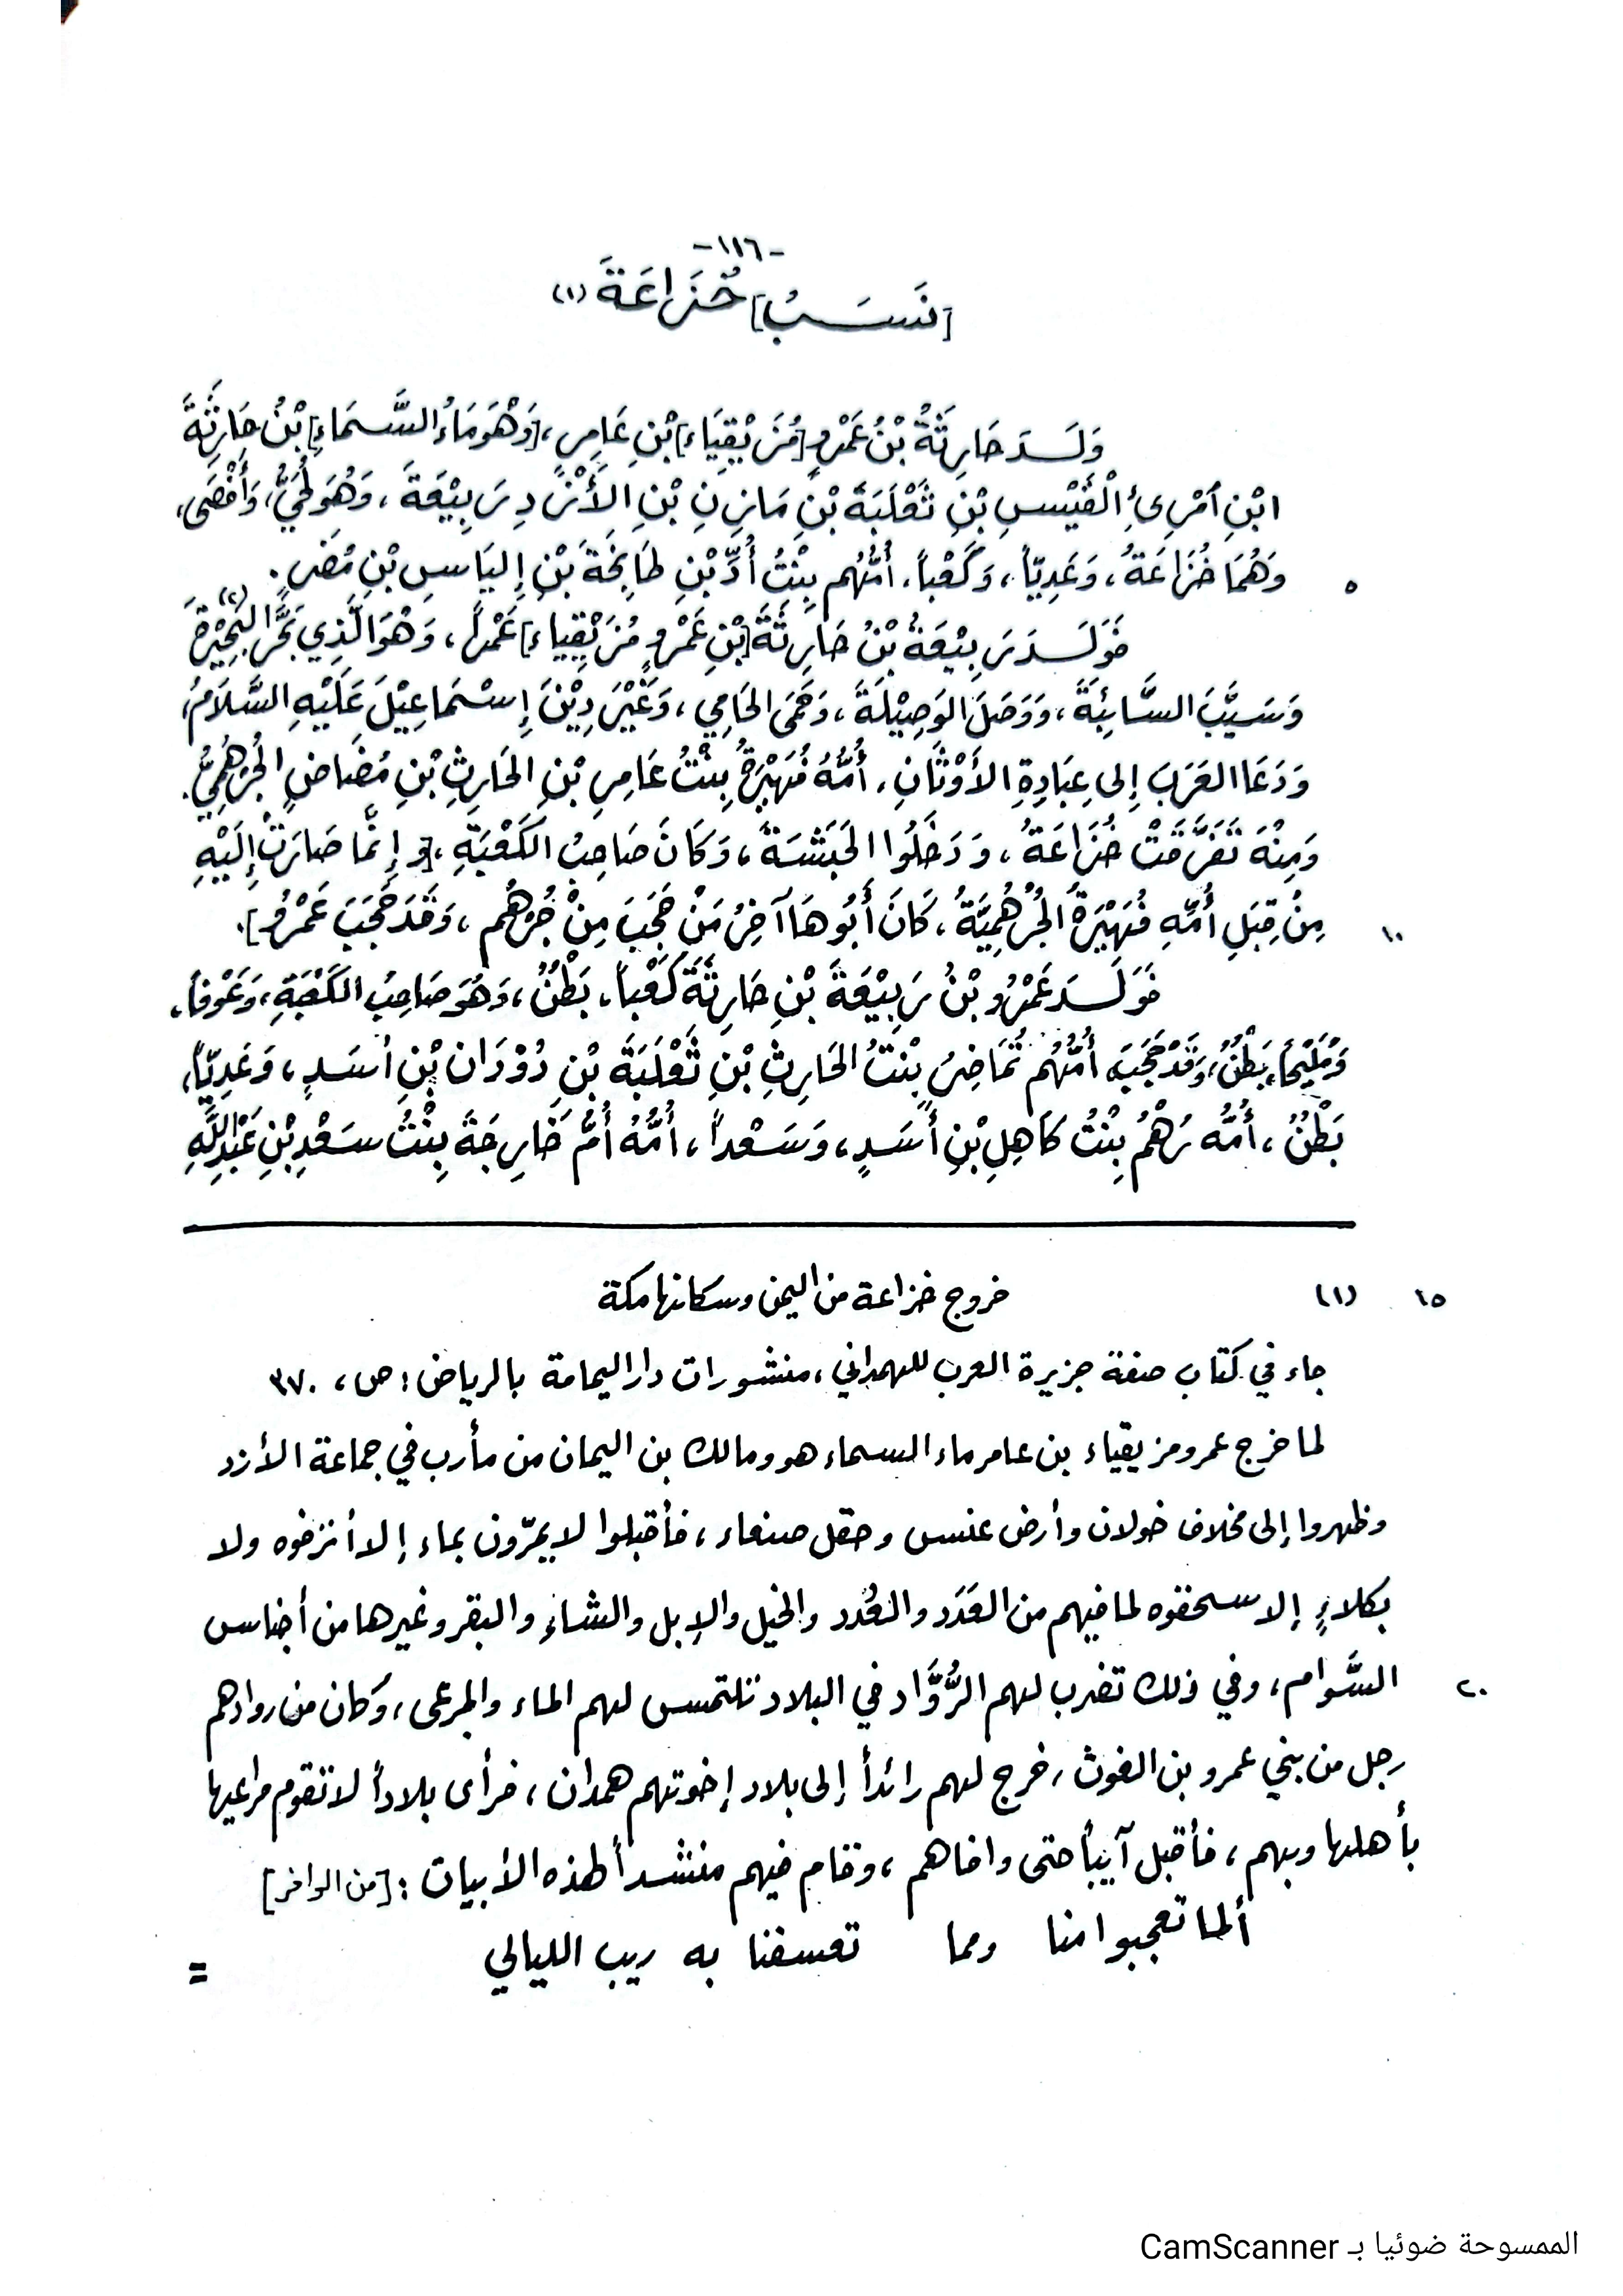 -١١٦-
[نَسَبُ] خُزَاعَةَ (١)
وَلَـدَ حَارِثَةُ بْنُ عَمْرٍو [مُزَيْقِيَاء] بْنِ عَامِرٍ، [وَهْوَ مَاءُ السَّمَاءِ] بْنُ حَارِثَةَ
ابْنِ امْرِئِ الْقَيْسِ بْنِ ثَعْلَبَةَ بْنِ مَازِنِ بْنِ الأَزْدِ رَبِيْعَةَ، وَهُوَ لُحَيٌّ، وَأَفْصَى،
٥ وَهُمَا خُزَاعَةُ، وَعَدِيّاً، وَكَعْباً، أُمُّهُم بِنْتُ أُدِّ بْنِ طَابِخَةَ بْنِ إِليَاسِ بْنِ مُضَرٍ.
فَوَلَـدَ رَبِيْعَةُ بْنُ حَارِثَةَ [بْنِ عَمْرٍو مُزَيْقِيَاء] عَمْراً، وَهْوَ الَّذِي بَحَّرَ البَحِيْرَةَ (٢)
وَسَيَّبَ السَّائِبَةَ، وَوَصَلَ الوَصِيْلَةَ، وَحَمَى الحَامِي، وَغَيَّرَ دِيْنَ إِسْمَاعِيْلَ عَلَيْهِ السَّلَامُ،
وَدَعَا العَرَبَ إِلى عِبَادِةِ الأَوْثَانِ، أُمُّهُ فُهَيْرَةُ بِنْتُ عَامِرِ بْنِ الحَارِثِ بْنِ مُضَاضٍ الجُرْهُمِيُّ.
وَمِنْهُ تَفَرَّقَتْ خُزَاعَةُ، وَدَخَلُوا الحَبَشَةَ، وَكَانَ صَاحِبُ الكَعْبَةِ، [وإِنَّما صَارَتْ إِلَيْهِ
١٠ مِنْ قِبَلِ أُمِّهِ فُهَيْرَةُ الجُرْهُمِيَّةُ، كَانَ أَبُوهَا آخِرُ مَنْ حَجَبَ مِنْ جُرْهُم، وَقَدَ حَجَبَ عَمْرُو].
فَوَلَـدَ عَمْرُو بْنُ رَبِيْعَةَ بْنِ حَارِثَةَ كَعْباً، بَطْنٌ، وَهُوَ صَاحِبُ الكَعْبَةِ، وَعَوْفاً،
وَمُلَيْحاً، بَطْنٌ، وَقَدْ حَجَبَ، أُمُّهُم تُمَاضِرُ بِنْتُ الحَارِثِ بْنِ ثَعْلَبَةَ بْنِ دُوْدَان بْنِ أَسَدٍ، وَعَدِيّاً،
بَطْنٌ، أُمُّه رُهْمُ بِنْتُ كَاهِلِ بْنِ أَسَدٍ، وَسَعْداً، أُمُّهُ أُمُّ خَارِجَةَ بِنْتُ سَعْدِ بْنِ عَبْدِ اللَّهِ
١٥ (١) خروج خزاعة من اليمن وسكانها مكة
جاء في كتاب صفة جزيرة العرب للهمداني، منشورات دار اليمامة بالرياض: ص، ٣٧٠
لما خرج عمرو مزيقياء بن عامر ماء السماء هو ومالك بن اليمان من مأرب في جماعة الأزد
وظهروا إلى مخلاف خولان وأرض عنس وحقل صنعاء، فأقبلوا لا يمرّون بماء إلا أنزفوه ولا
بكلاءٍ إلا سحقوه لما فيهم من العَدَد والعُدد والخيل والإبل والشاءِ والبقر وغيرها من أجناس
٢٠ السَّوام، وفي ذلك تضرب لهم الرُّوَّاد في البلاد تلتمس لهم الماء والمرعى، وكان من روادهم
رجل من بني عمرو بن الغوث، خرج لهم رائداً إلى بلاد إخوتهم همدان، فرأى بلاداً لا تقوم مراعيها
بأهلها وبهم، فأقبل آيباً حتى وافاهم، وقام فيهم منشداً لهذه الأبيات: [من الوافر]
ألما تعجبوا منا ومما تعسفنا به ريب الليالي
=
الممسوحة ضوئيا بـ CamScanner